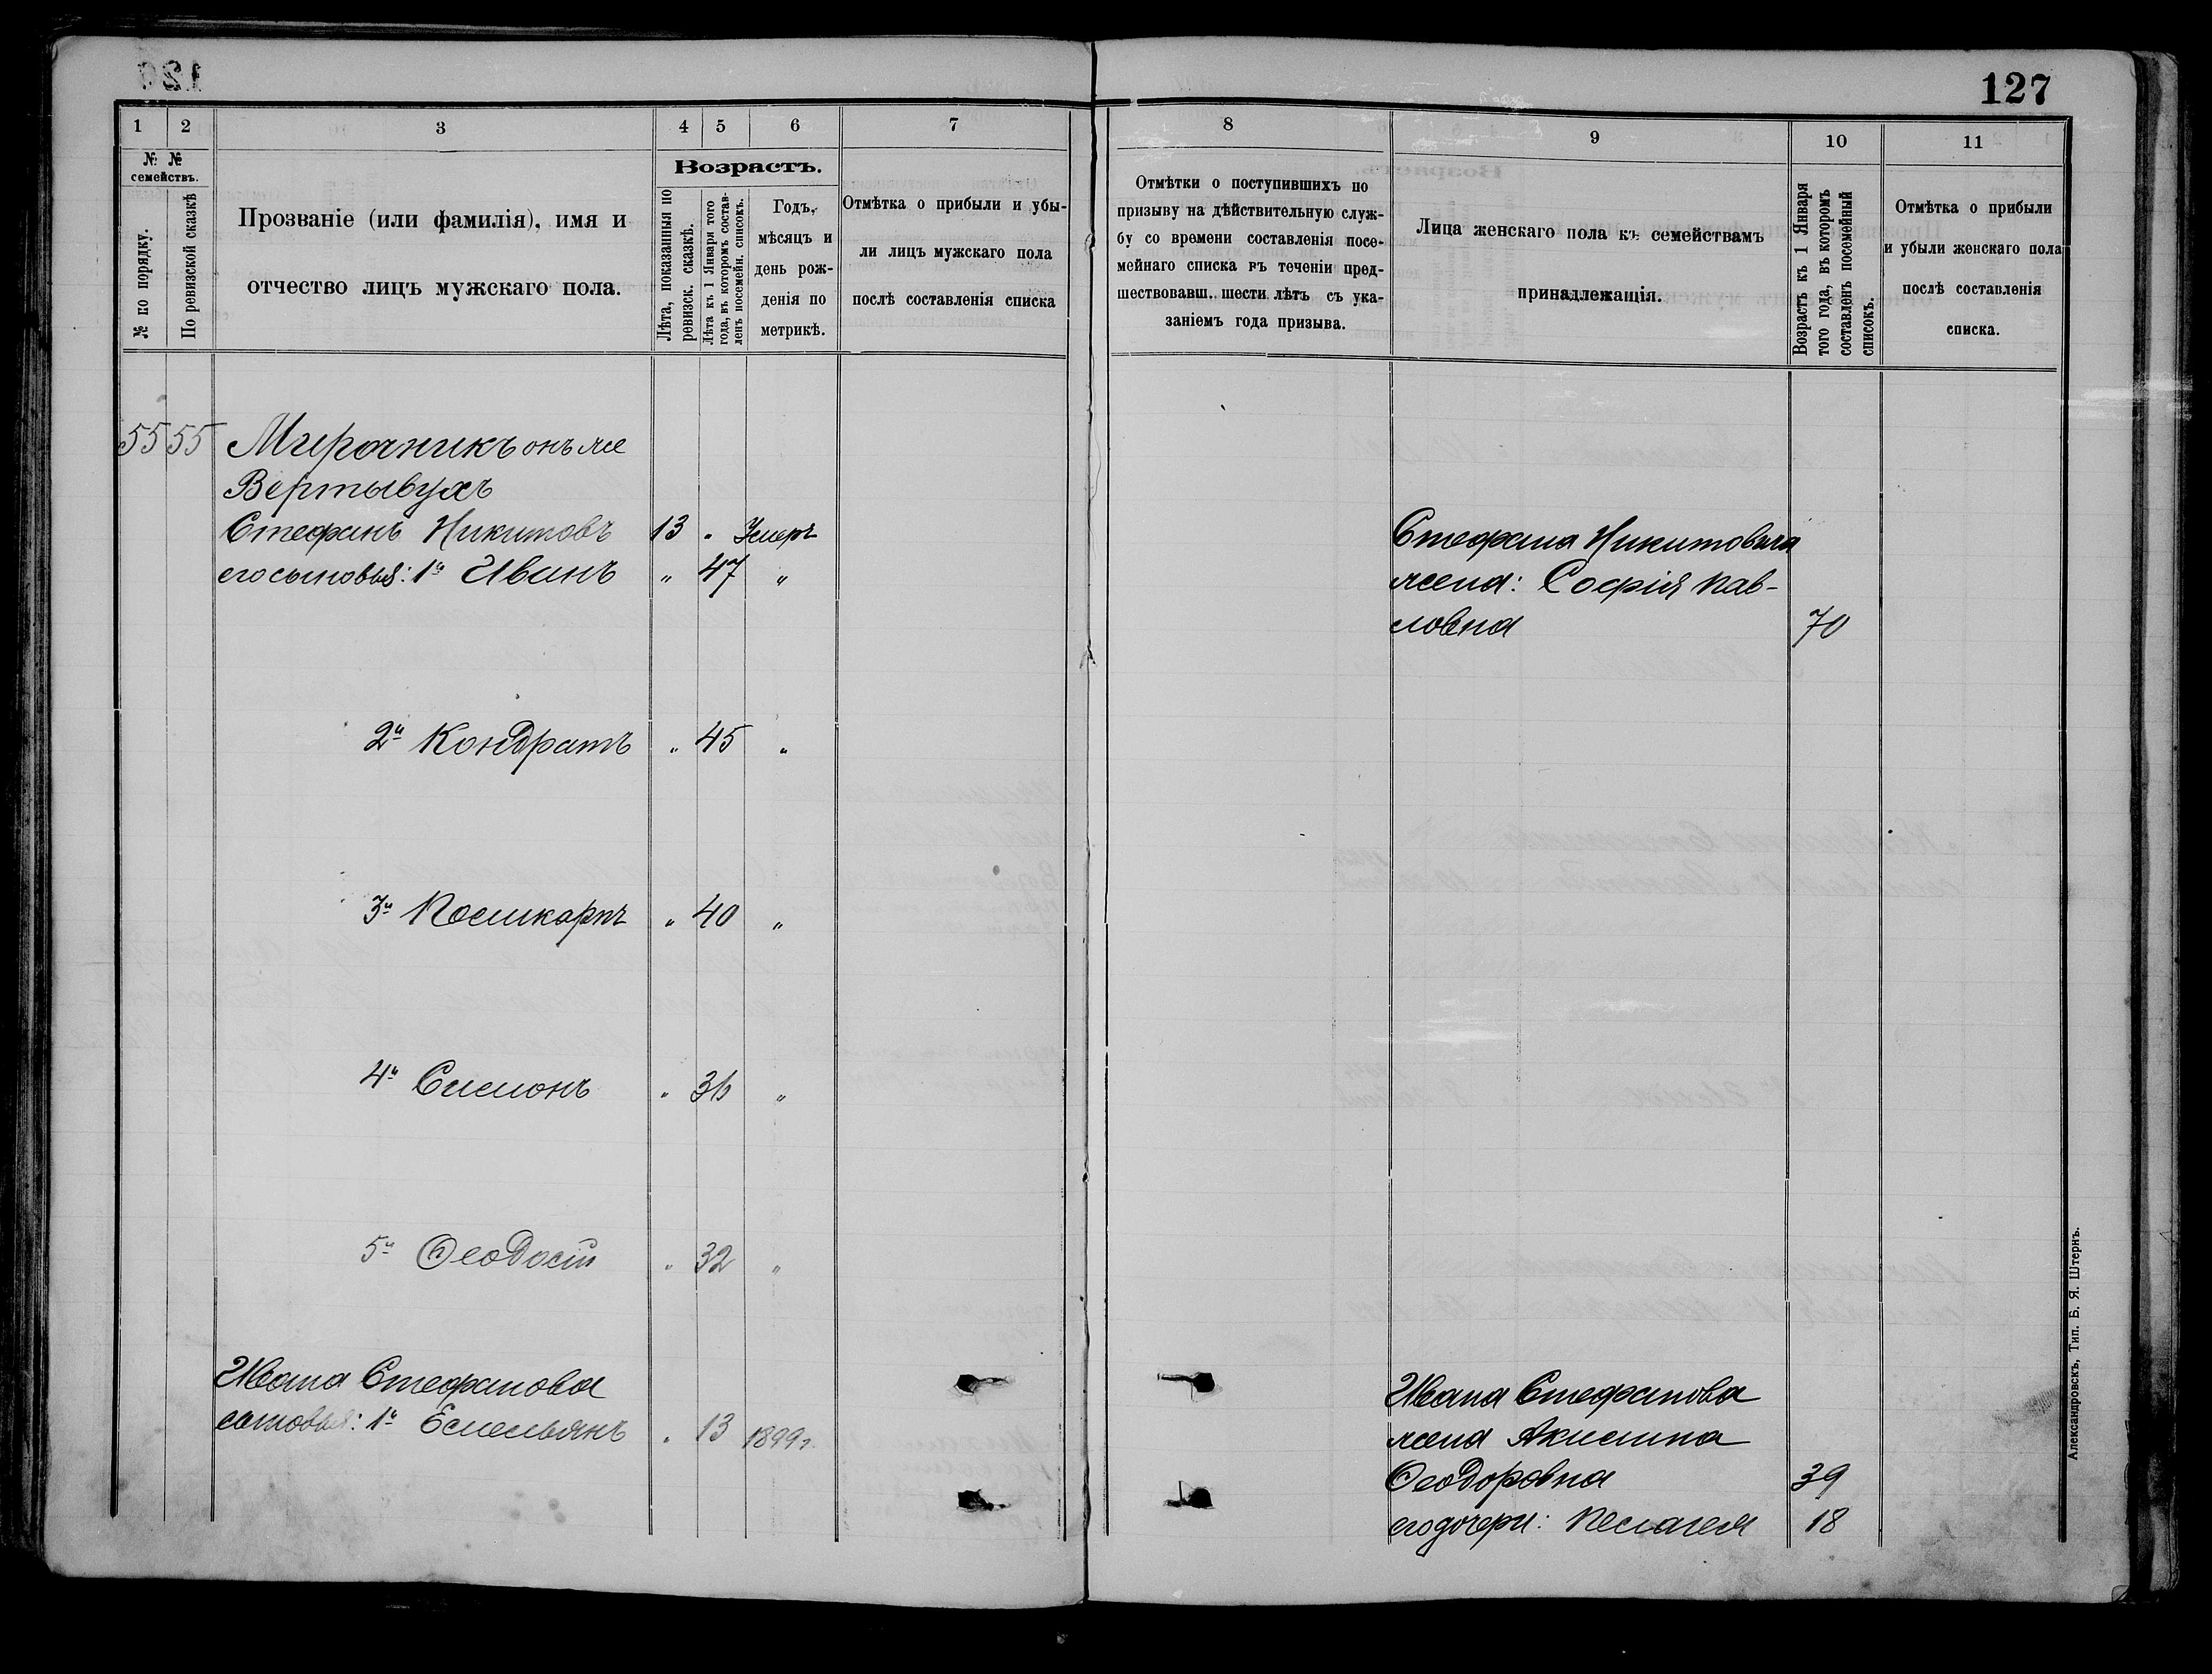 127
1 2 3 4 5 6 7
№ № семействъ.
№ по порядку.
По ревизской сказкѣ
Прозваніе (или фамилія), имя и
отчество лицъ мужскаго пола.
Возрастъ.
Лѣта, показанныя по
ревизск. сказкѣ.
Лѣта къ 1 Января того
года, въ которомъ состав-
ленъ посемейн. списокъ.
Годъ,
мѣсяцъ и
день рож-
денія по
метрикѣ.
Отмѣтка о прибыли и убы-
ли лицъ мужскаго пола
послѣ составленія списка
55 55 Мирочникъ онъ же
Вертывухъ
Стефанъ Никитовъ 13 " Умеръ
его сыновья: 1й Иванъ " 47 "
2й Кондратъ " 45 "
3й Поликарпъ " 40 "
4й Симонъ " 36 "
5й Ѳеодосій " 32 "
Ивана Стефанова
сыновья: 1й Емельянъ " 13 1899г.
8 9 10 11
Отмѣтки о поступившихъ по
призыву на дѣйствительную служ-
бу со времени составленія посе-
мейнаго списка въ теченіи пред-
шествовавш. шести лѣтъ съ ука-
заніемъ года призыва.
Лица женскаго пола къ семействамъ
принадлежащія.
Возрастъ къ 1 Января
того года, въ которомъ
составленъ посемейный
списокъ.
Отмѣтка о прибыли
и убыли женскаго пола
послѣ составленія
списка.
Стефана Никитовича
жена: Софія Пав-
ловна 70
Ивана Стефанова
жена Акилина
Ѳеодоровна 39
его дочери: Пелагея 18
Александровскъ, Тип. Б. Я. Штернъ.